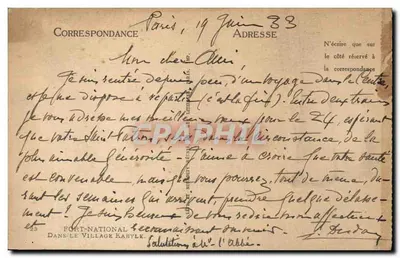 Paris, 19 Juin 33
CORRESPONDANCE
ADRESSE
N'écrire que sur
le côté réservé à
la correspondance
Mon cher Ami,
Je suis rentré depuis peu d'un voyage dans le Centre,
et je me dispose à repartir (c'est la fin). Entre deux trains
je vous adresse mes meilleurs vœux pour le 24, espérant
que votre Saint Patron, sera en la circonstance, de la
plus aimable générosité - J'aime à croire que votre santé
est convenable, mais que vous pourrez, tout de même, du-
rant les semaines qui arrivent, prendre quelque délasse-
ment! Je suis heureux de vous redire mon affectueux
et reconnaissant souvenir.
FORT-NATIONAL
DANS LE VILLAGE KABYLE
Salutations à Mr l'Abbé.
CPArama.com